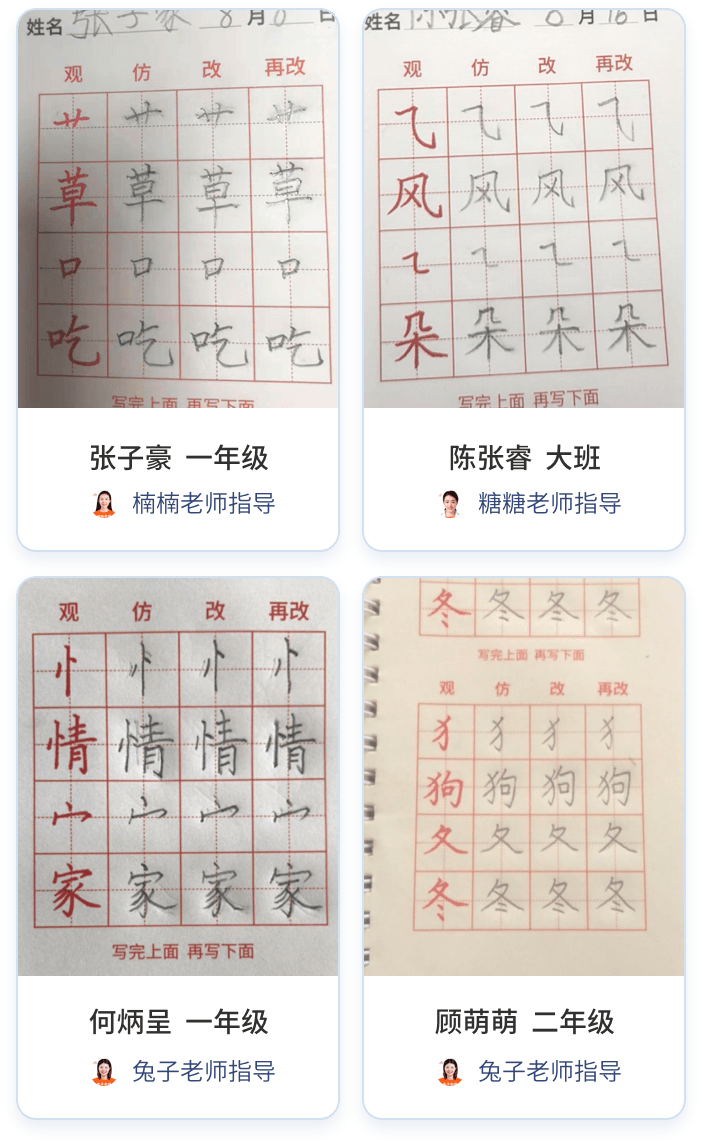 姓名 张子豪 8 月 日
观 仿 改 再改
艹 艹 艹 艹
草 草 草 草
口 口 口 口
吃 吃 吃 吃
写完上面 再写下面
张子豪 一年级
楠楠老师指导
姓名 陈张睿 8 月 16 日
观 仿 改 再改
⺄ ⺄ ⺄ ⺄
风 风 风 风
朵 朵 朵 朵
写完上面 再写下面
陈张睿 大班
糖糖老师指导
观 仿 改 再改
忄 忄 忄 忄
情 情 情 情
宀 宀 宀 宀
家 家 家 家
写完上面 再写下面
何炳呈 一年级
兔子老师指导
冬 冬 冬 冬
写完上面 再写下面
观 仿 改 再改
犭 犭 犭 犭
狗 狗 狗 狗
夂 夂 夂 夂
冬 冬 冬 冬
顾萌萌 二年级
兔子老师指导